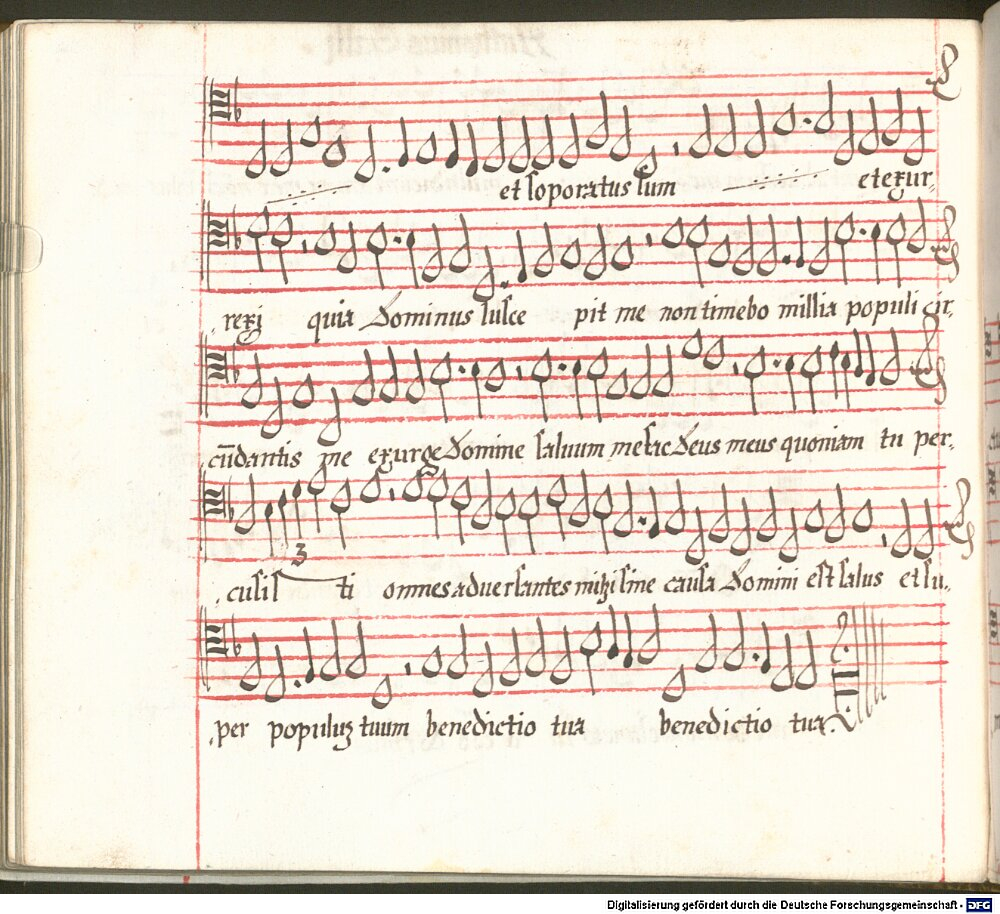 et soporatus sum et exur-
rexi quia Dominus susce pit me non timebo millia populi cir-
cūdantis me exurge Domine salvum me fac Deus meus quoniam tu per-
cusis ti omnes adversantes mihi sine causa Domini est salus et su-
3
per populuz tuum benedictio tua benedictio tua.
Digitalisierung gefördert durch die Deutsche Forschungsgemeinschaft - DFG